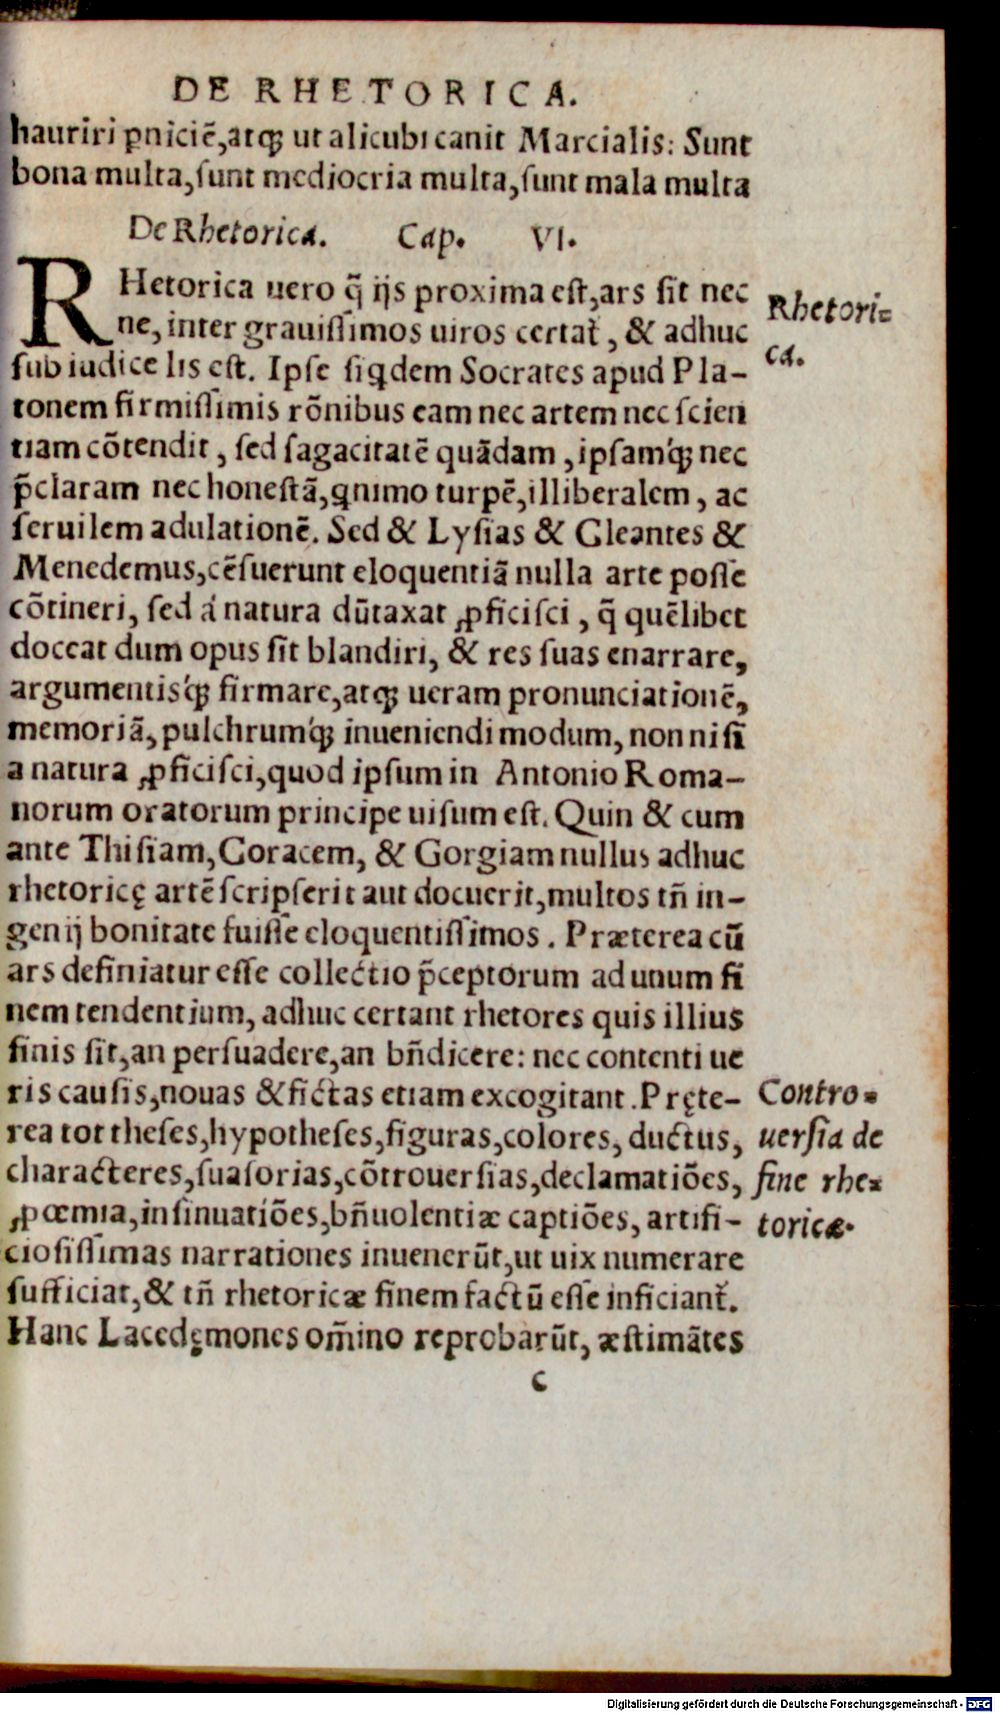 DE RHETORICA.
hauriri ꝑniciē,atqꝫ ut alicubi canit Marcialis: Sunt
bona multa,ſunt mediocria multa,ſunt mala multa
De Rhetorica. Cap. VI.
RHetorica uero q̃ ijs proxima eſt,ars ſit nec
ne, inter grauiſſimos uiros certat̃, & adhuc
ſub iudice lis eſt. Ipſe ſiqdem Socrates apud Pla-
tonem firmiſſimis rõnibus eam nec artem nec ſcien
tiam cõtendit, ſed ſagacitatē quãdam, ipſamq́ꝫ nec
p̃claram nec honeſtã,qnimo turpē,illiberalem, ac
ſeruilem adulationē. Sed & Lyſias & Cleantes &
Menedemus,cēſuerunt eloquentiã nulla arte poſſe
cõtineri, ſed á natura dūtaxat ꝓficiſci, q̃ quēlibet
doceat dum opus ſit blandiri, & res ſuas enarrare,
argumentisq́ꝫ firmare,atqꝫ ueram pronunciationē,
memoriã, pulchrumq́ꝫ inueniendi modum, non niſi
a natura ꝓficiſci,quod ipſum in Antonio Roma-
norum oratorum principe uiſum eſt. Quin & cum
ante Thiſiam,Coracem, & Gorgiam nullus adhuc
rhetoricę artē ſcripſerit aut docuerit,multos tñ in-
genij bonitate fuiſſe eloquentiſſimos. Præterea cū
ars definiatur eſſe collectio p̃ceptorum ad unum fi
nem tendentium, adhuc certant rhetores quis illius
finis ſit,an perſuadere,an bñdicere: nec contenti ue
ris cauſis,nouas & fictas etiam excogitant. Pręte-
rea tot theſes,hypotheſes,figuras,colores, ductus,
characteres,ſuaſorias,cõtrouerſias,declamatiões,
ꝓœmia,inſinuatiões,bñuolentiæ captiões, artifi-
cioſiſſimas narrationes inuenerūt,ut uix numerare
ſufficiat,& tñ rhetoricæ finem factū eſſe inficiant̃.
Hanc Lacedęmones om̃ino reprobarūt, æſtimãtes
c
Rhetori=
ca.
Contro=
uerſia de
fine rhe=
toricæ.
Digitalisierung gefördert durch die Deutsche Forschungsgemeinschaft - DFG